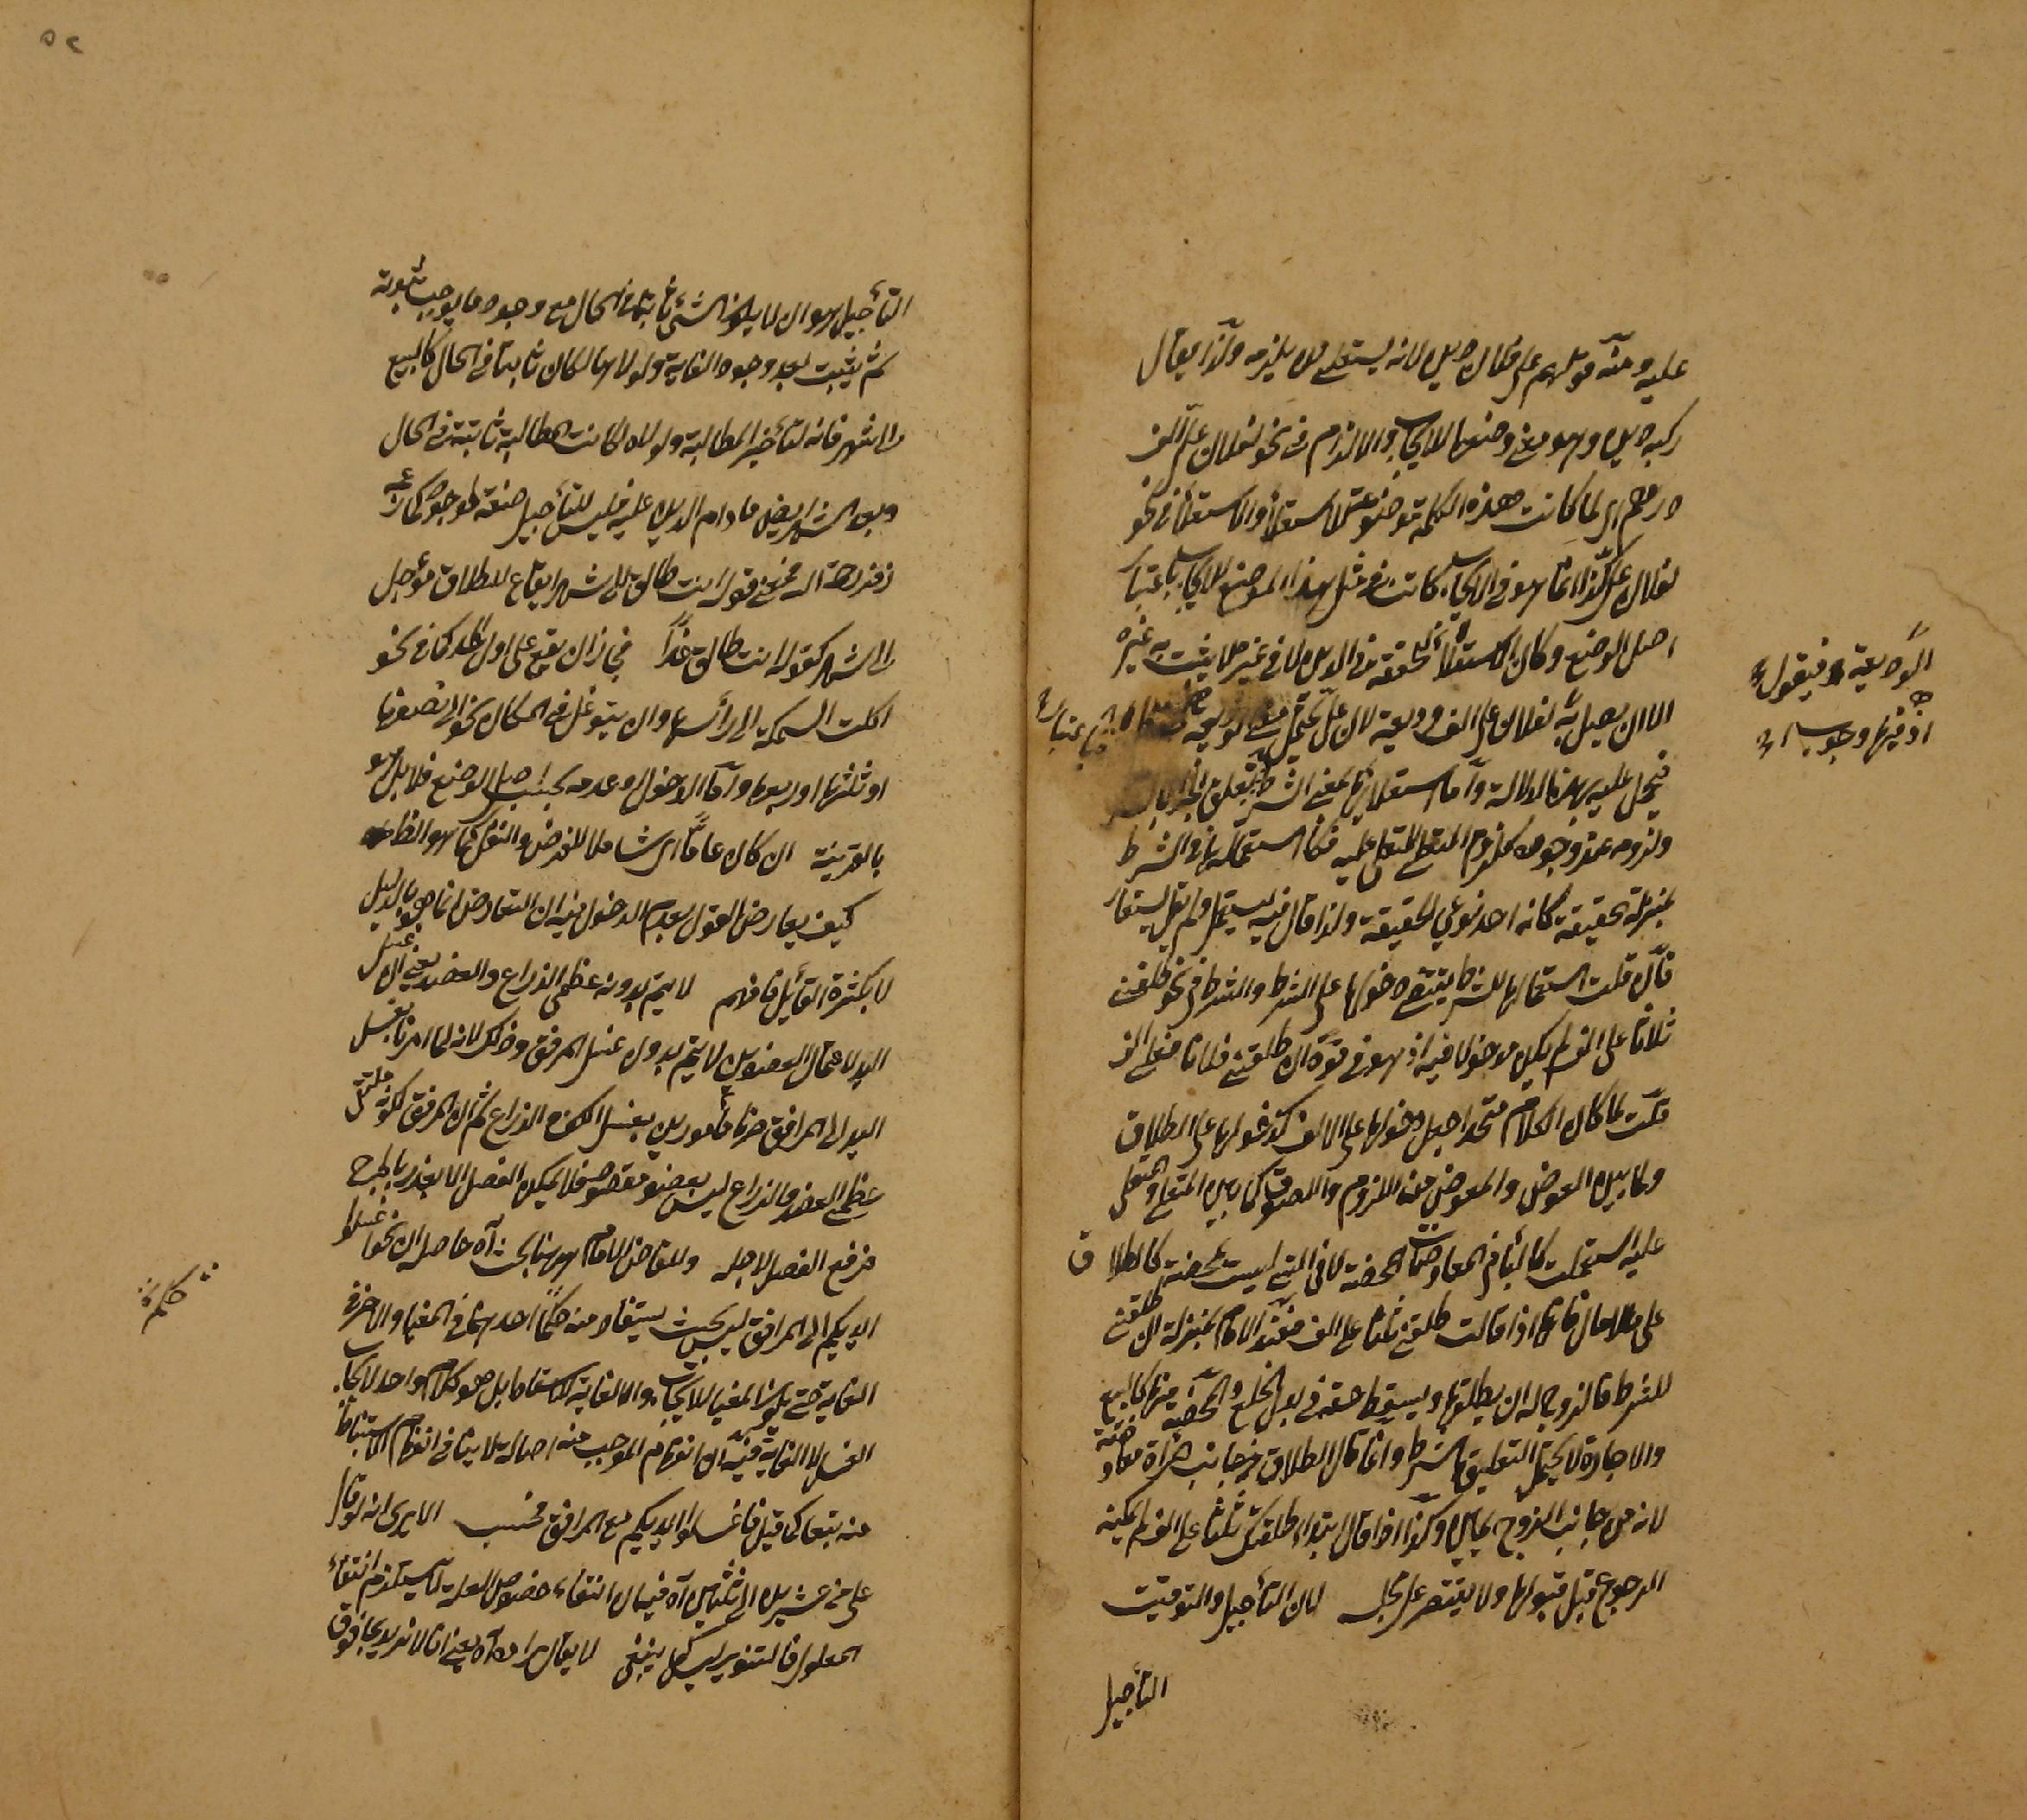 عليه ومنه قولهم على فلان دين لانه يستعلى من يلزمه ولذا يقال
ركبه دين وهو معنى وضعها للايجاب والالزام في نحو لفلان على الف
درهم اي لما كانت هذه الكلمة موضوعة للاستعلاء والاستعلاء في نحو
لفلان على كذا انما هو في الايجاب كانت في مثل هذا الموضع للايجاب باعتبار
اصل الوضع وكان الاستعلاء تحققه في الدين لا في غيره فلا يثبت به غيره
الا ان يصل به لفلان على الف وديعة لان على يحتمل معنى الوديعة
الوديعة فيقول
اذ فيها وجوب
فيحمل عليه بهذه الدلالة واما استعلائها بمعنى الشرط فيتعلق الجزاء بالشرط
ولزومه عند وجوده كلزوم المتعلى للمتعلى عليه فكان استعماله في الشرط
بمنزلة الحقيقة كانه احد نوعي الحقيقة ولذا قال فيه يستعمل ولم يقل يستعار
فان قلت استعمالها للشرط يقتضي دخولها على الشرط والشرط في نحو طلقني
ثلاثا على الف لم يكن مدخولا فيه اذ هو في قوة ان طلقتني ثلاثا فعلي الف
قلت لما كان الكلام متحدا جعل دخولها على الالف كدخولها على الطلاق
ولما بين العوض والمعوض من اللزوم واللصوق كما بين المتعلى والمتعلى
عليه استعملت كالباء في المعاوضات المحضة لا في التي ليست بمحضة كالطلاق
على مال فانها اذا قالت طلقني ثلثا على الف فعند الامام بمنزلة ان طلقتني
للشرط فالزوج له ان يطلقها ويسقط حقه في بدل الخلع والمحضة منها كالبيع
والاجارة لا يحتمل التعليق بالشرط وانما كان الطلاق من جانب المرأة معاوضة
لانه من جانب الزوج يمين وكذا اذا قال ابتداء طلقتك ثلثا على الف لم يمكنه
الرجوع قبل قبولها ولا يقتصر على مجلسه لان التأجيل والتوقيت
التأجيل
التأجيل هو ان لا يكون الشيء ثابتا في الحال مع وجود ما يوجب ثبوته
ثم يثبت بعد وجود الغاية ولولاها لكان ثابتا في الحال كالبيع
الى شهر فانه لتأخير المطالبة ولولاه لكانت المطالبة ثابتة في الحال
وبعد الشهر ايضا ما دام الدين عليه فليس للتأجيل صنعة
زفر رحمه الله في قوله انت طالق الى شهر ايقاع للطلاق مؤجل
الى شهر كقوله انت طالق غدا في ان يقع على اول الغد كما في نحو
اكلت السمكة الى رأسها وان يتوغل في المكان نحو الى نصفها
او ثلثها او ربعها واما الدخول وعدمه بحسب اصل الوضع فلا بل هو
بالقرينة ان كان عاما اي شاملا للفرض والنفل كما هو الظاهر
كيف يعارض القول بعدم الدخول فيه ان التعارض انما هو بالدليل
لا بكثرة القائل فافهم لا يتم بدونه عظمي الذراع والعضد يعني ان غسل
اليد لا عمال العضوين لا يتم بدون غسل المرفق وذلك لانه لما امرنا بغسل
اليد الى المرافق صرنا مأمورين بغسل الكف والذراع ثم ان المرفق لكونه ملتقى
عظمي العضد والذراع ليس بعضو مقصود فلا يمكن الفصل الا بغدر ما يخرج
فرفع الفصل لاجله وللفاضل الامام ههنا بحث آه حاصله ان نحو اغسلوا
ايديكم الى المرافق ليس بحيث يستفاد منه حكما احدهما في المغيا والاخر في
الغاية حتى يكون المغيا للايجاب والى الغاية للاسقاط بل هو كلام واحد لايجاب
الغسل لا الغاية فيه ان انفهام الموجب منه اصالة لا ينافي انفهام الاسقاط
منه بتعا كما قيل فاغسلوا ايديكم مع المرافق فحسب الا يرى انه لو قال
على من عشرين الى ثلثين آه فيه ان انتفاء خصوص العلة لا يستلزم انتفاء
المعلول فالتنوير ليس كما ينبغي لا يقال مراده آه يعني انا لا نريد بما فوق